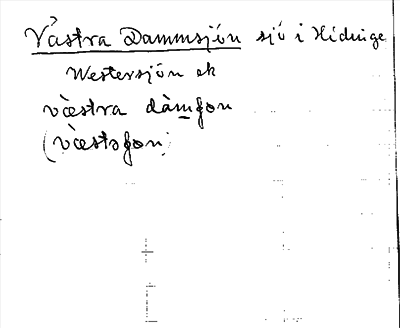 Västra Dammsjön sjö i Hidinge
Westersjön ek
væ̀stra dàm̱ʃon
(væ̀stəʃon)